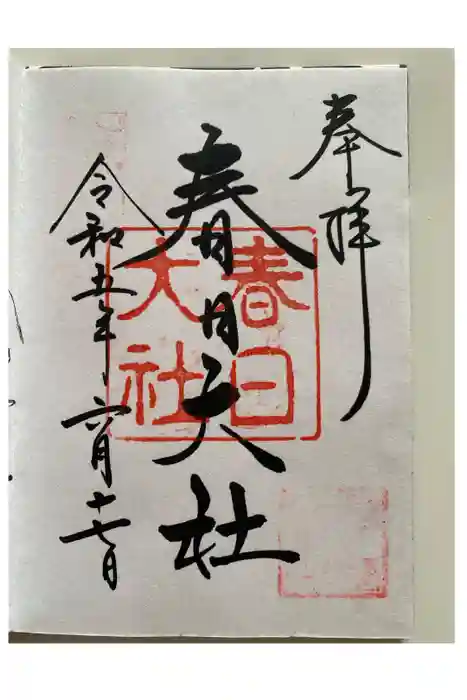 奉拝
春日大社
春日
大社
令和五年六月十七日